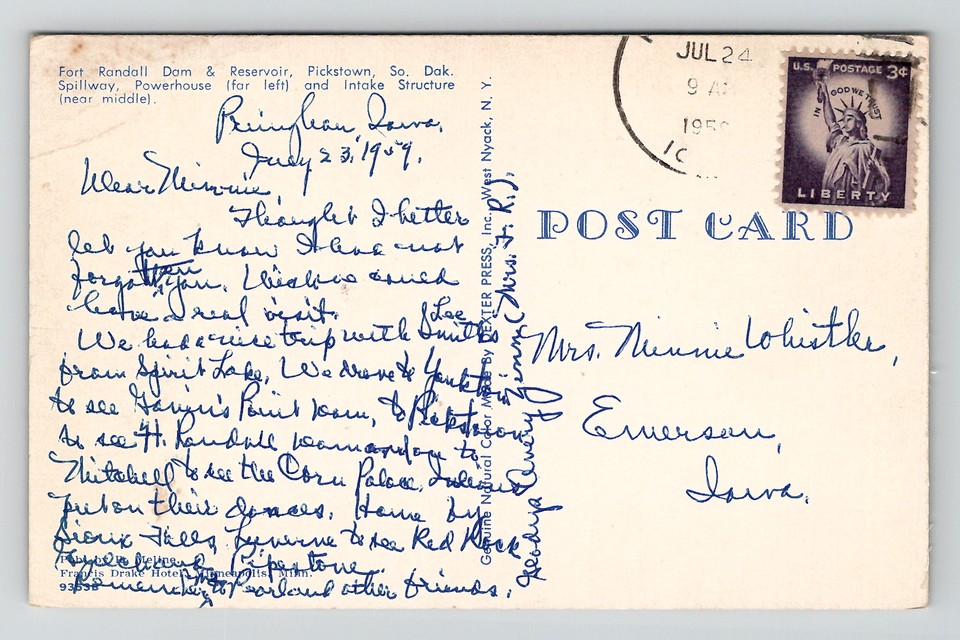 Fort Randall Dam & Reservoir, Pickstown, So. Dak.
Spillway, Powerhouse (far left) and Intake Structure
(near middle).
Iowa,
July 23, 1959.
Dear Minnie
Thought I better
let you know I have not
forgotten you. Wish we could
have a real visit.
We had a nice trip with Lee Smith's
from Spirit Lake, We drove to Yankton
to see Gavin's Point Dam, to Pickstown
to see Ft. Randall Dam and on to
Mitchell to see the Corn Palace, Indians
put on their dances. Home by
Sioux Falls, Luverne to see Red Rock
Pipestone.
Remember me to Pearl and other friends.
Gladys Avery Zinn (Mrs. F. R.),
Pub. by
Francis Drake Hotel, Minneapolis, Minn.
93538
Genuine Natural Color Made By DEXTER PRESS, Inc., West Nyack, N. Y.
JUL 24
9 A
195
U.S. POSTAGE 3¢
IN GOD WE TRUST
LIBERTY
POST CARD
Mrs. Minnie Whistler,
Emerson,
Iowa.